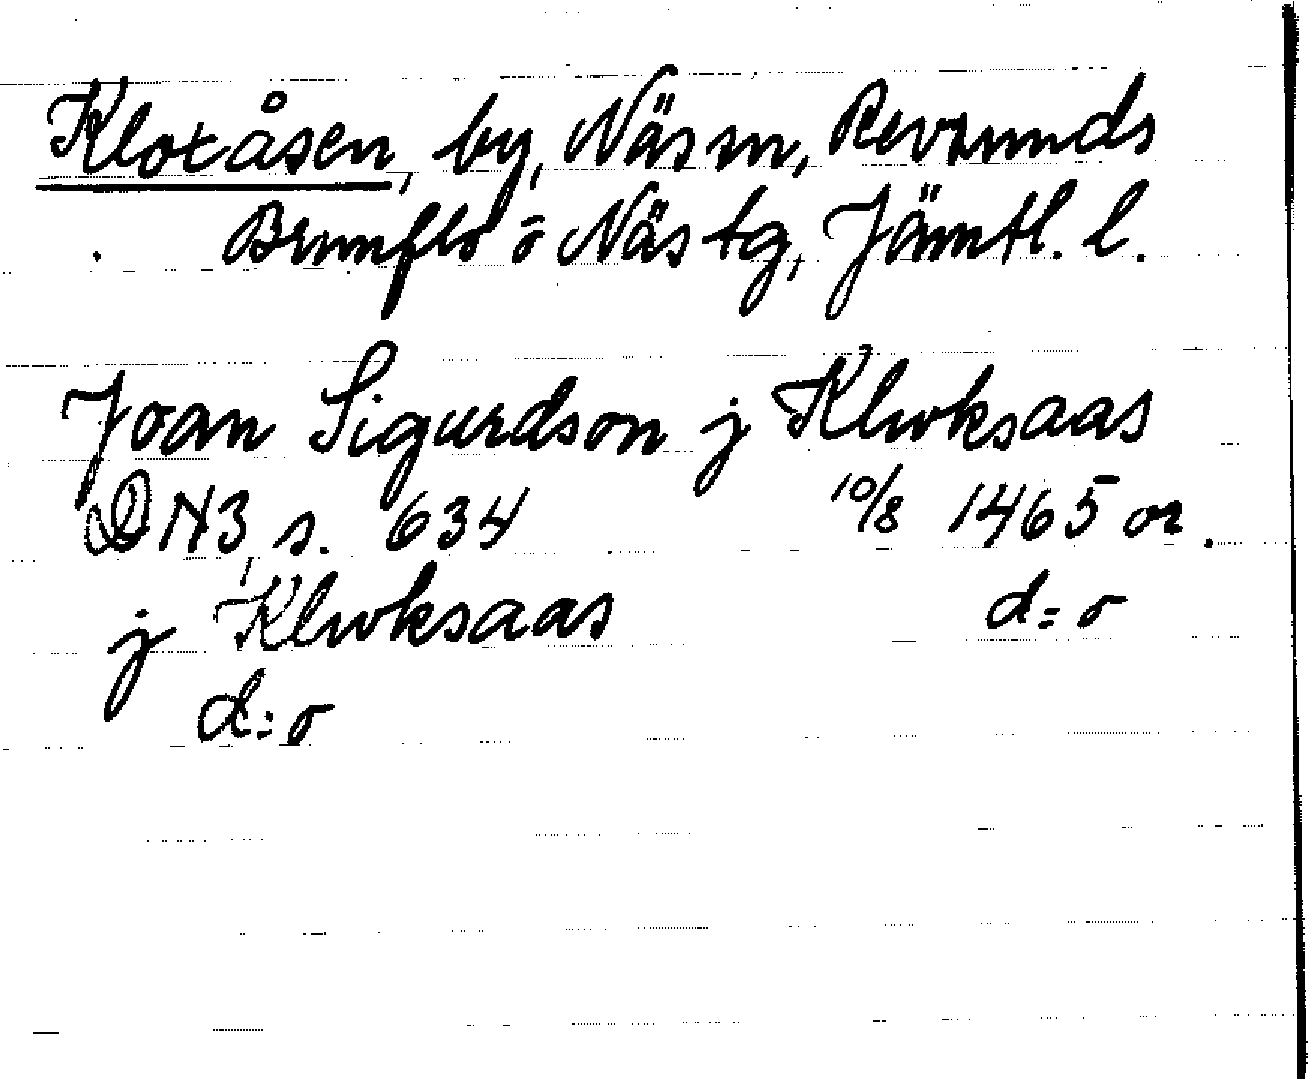 Kloxåsen, by, Näs sn, Revsunds
Brunflo o Näs tg, Jämtl. l.
Joan Sigurdson j Klwksaas
DN3, s. 634 10/8 1465 or.
j Klwksaas d:o
d:o